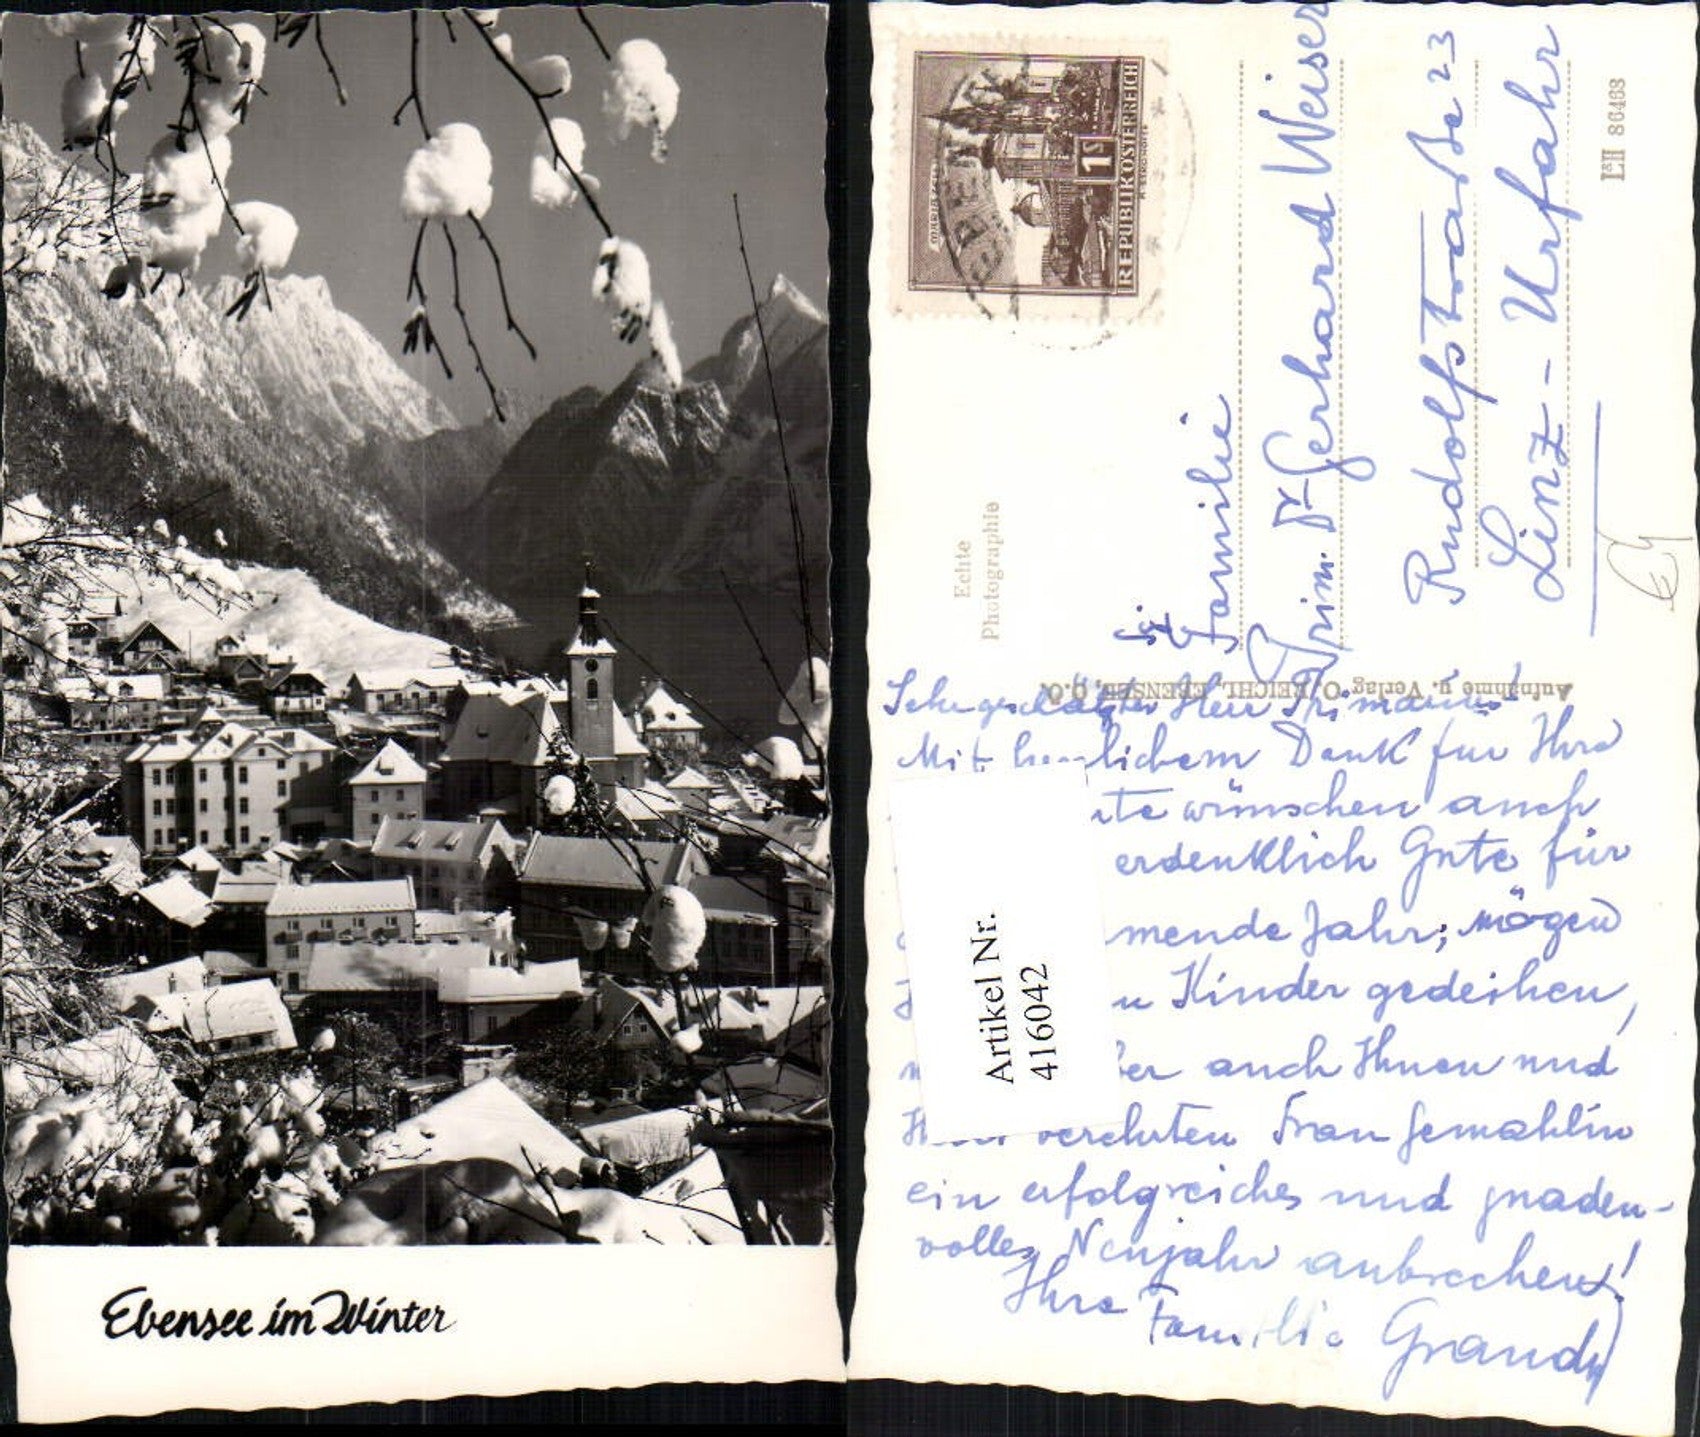 Ebensee im Winter
REPUBLIK ÖSTERREICH
1S
Echte
Photographie
Familie
Prim. Dr. Gerhard Weiser
Rudolfstraße 23
Linz - Urfahr
L&H 86468
Aufnahme u. Verlag O. REICHL, EBENSEE, O.Ö.
Sehr geschätzter Herr Primarius!
Mit herzlichem Dank für Ihre
wünschen auch
erdenklich Gute für
mende Jahr; mögen
Kinder gedeihen,
auch Ihnen und
verehrten Frau Gemahlin
ein erfolgreiches und gnaden-
volles Neujahr anbrechen!
Ihre Familie
Artikel Nr.
416042